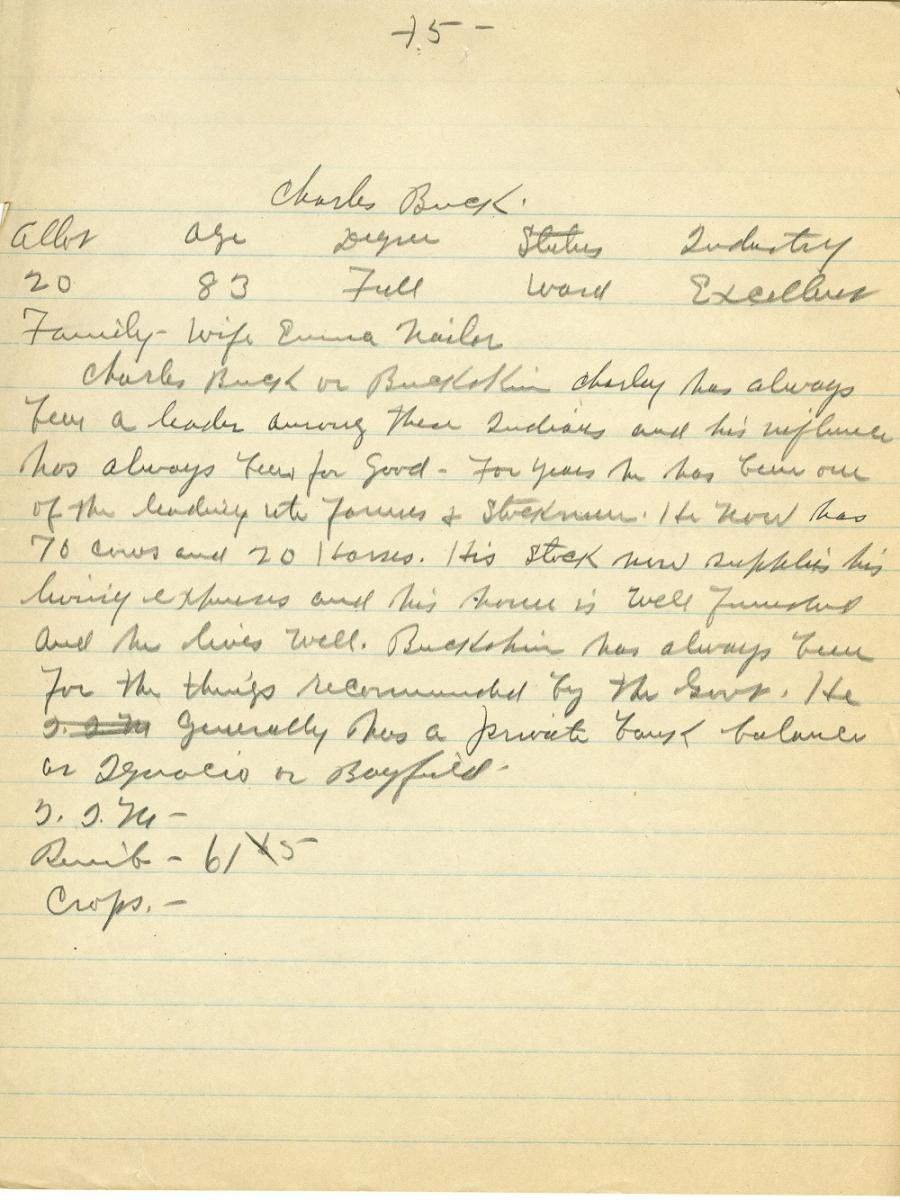 75 -
Charles Buck.
Allot Age Degree Status Industry
20 83 Full Ward Excellent
Family - Wife Emma Nailor
Charles Buck or Buckskin Charley has always
been a leader among these Indians and his influence
has always been for Good - For years he has been one
of the leading Ute Farmers & Stockmen. He now has
70 cows and 20 Horses. His Stock now supplies his
living expenses and his home is well furnished
and he lives well. Buckskin has always been
for the things recommended by the Govt. He
I. I. M Generally has a private bank balance
at Ignacio or Bayfield.
I. I. M -
Reimb - 61
Crops. -